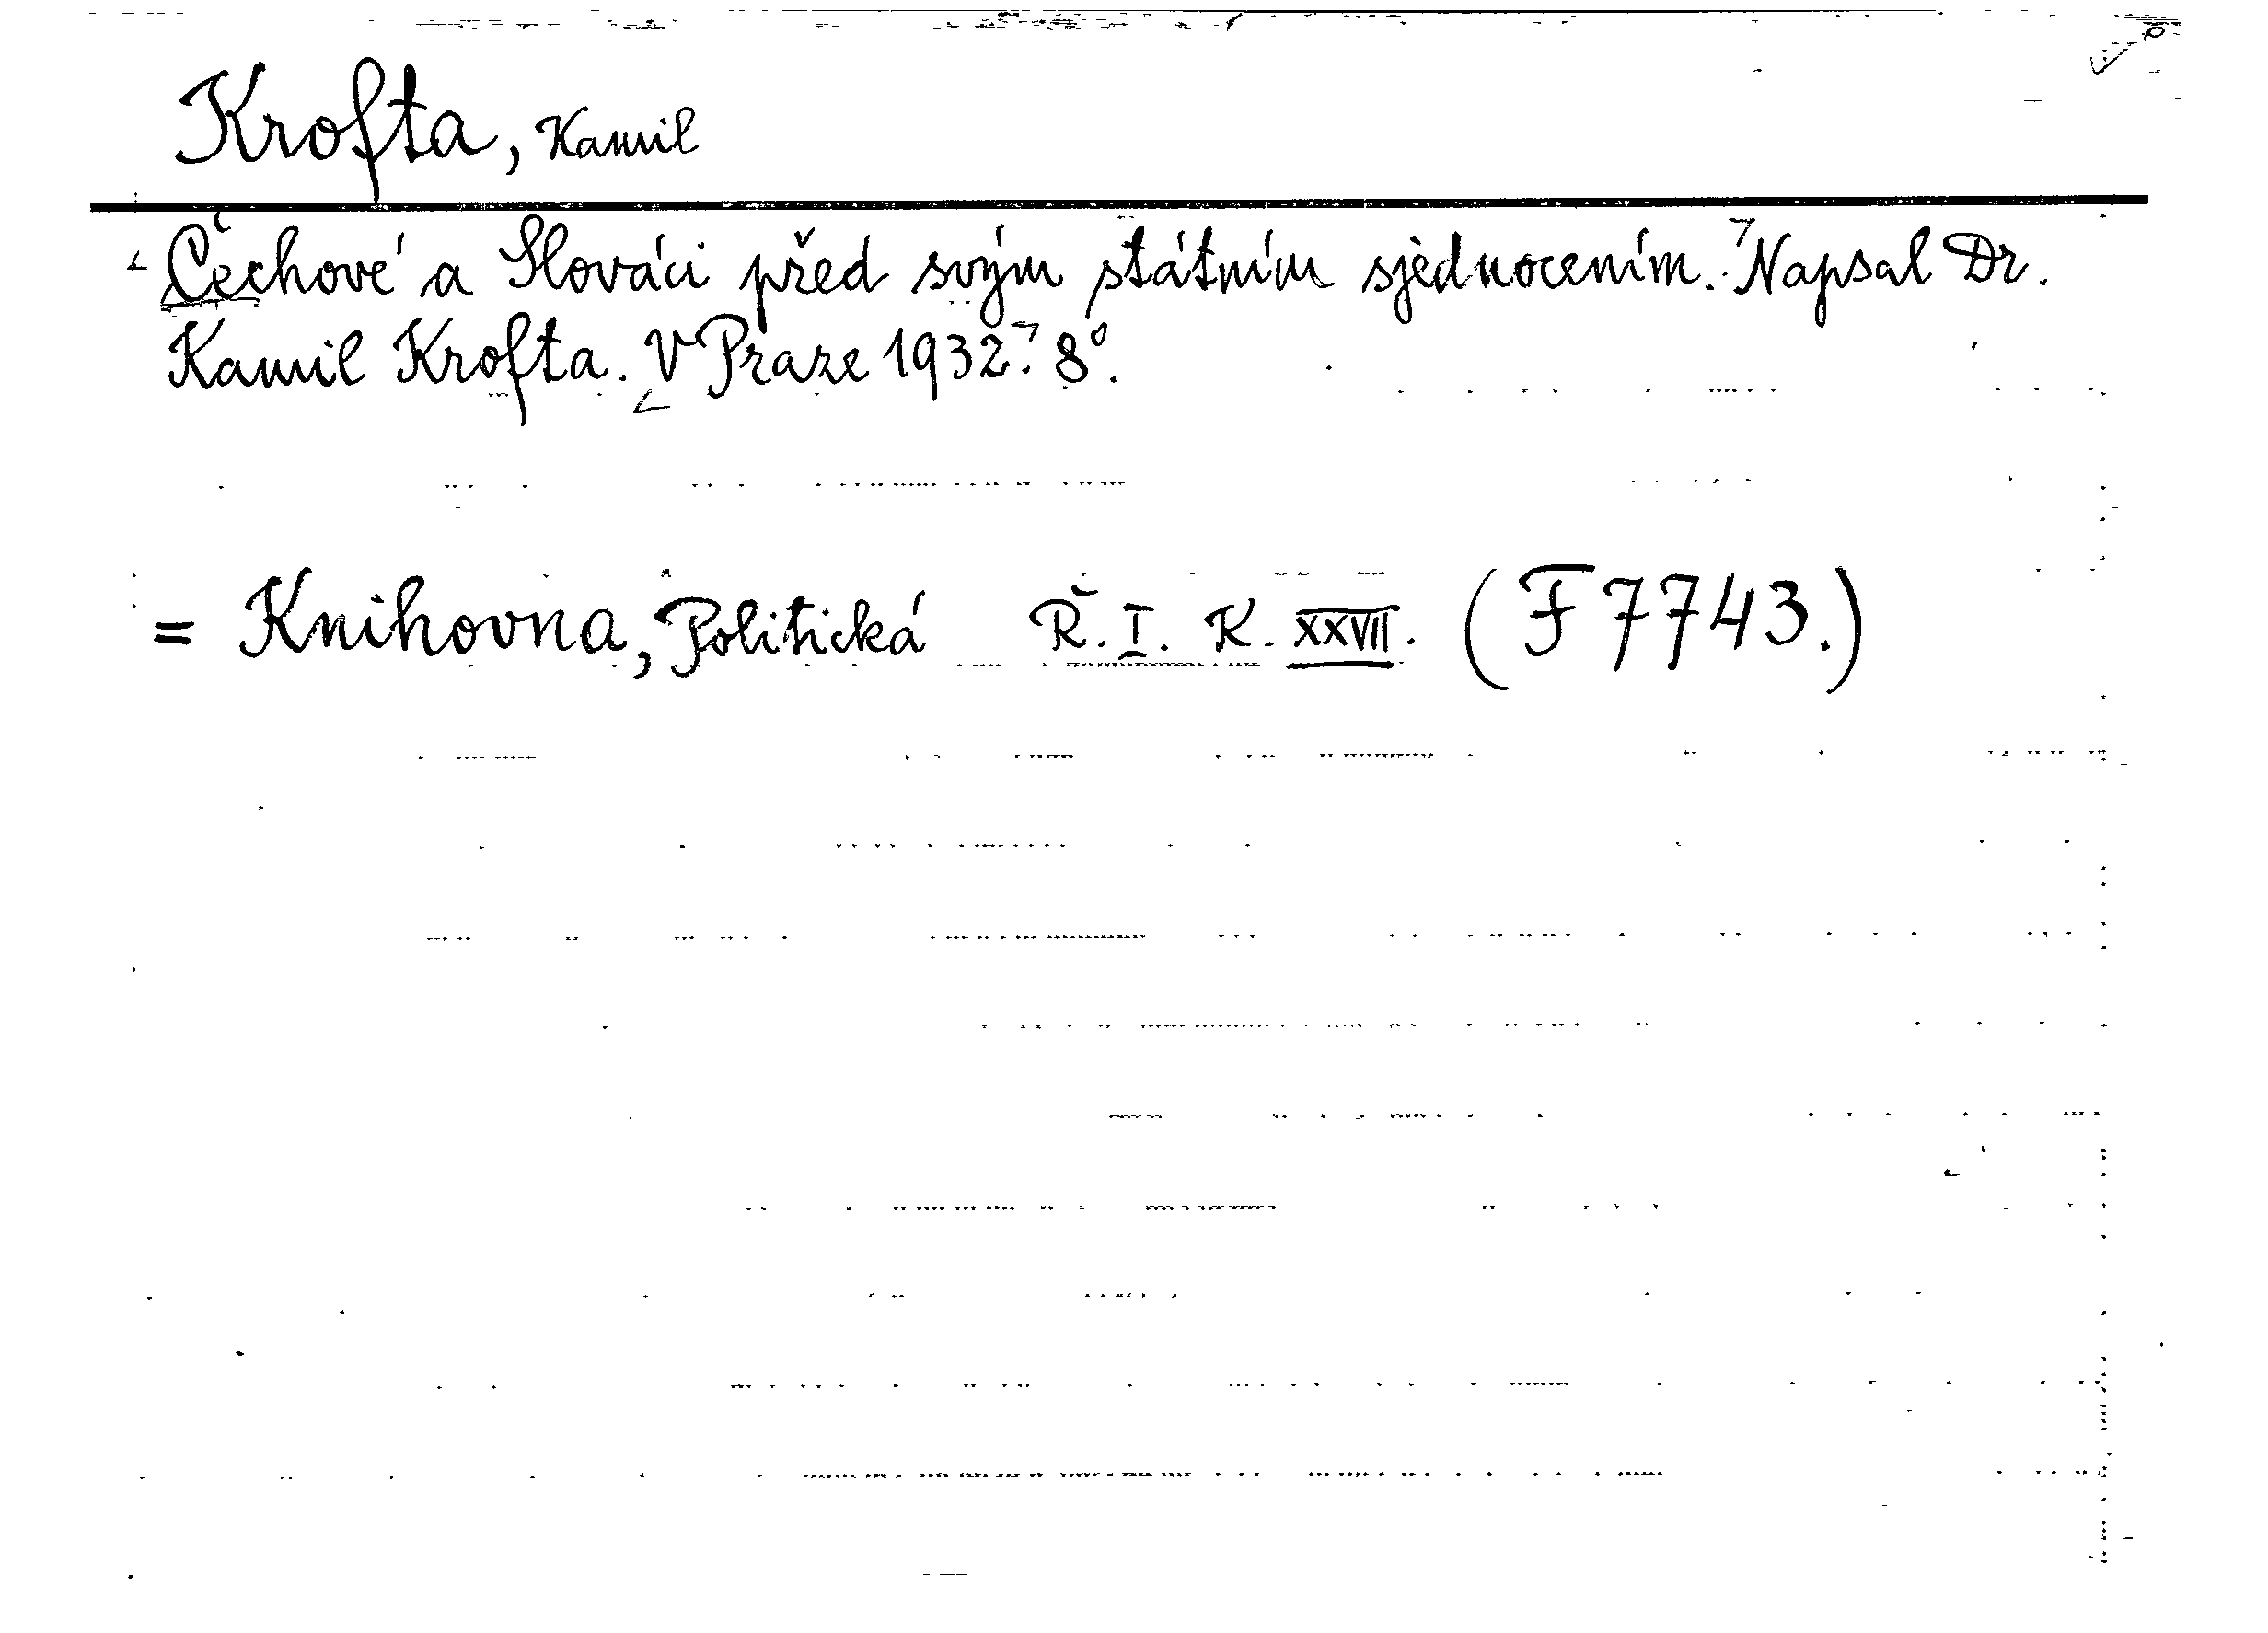 Krofta, Kamil
Čechové a Slováci před svým státním sjednocením. Napsal Dr.
Kamil Krofta. V Praze 1932. 8°.
= Knihovna, Politická Ř. I. K. XXVII. (F 7743.)